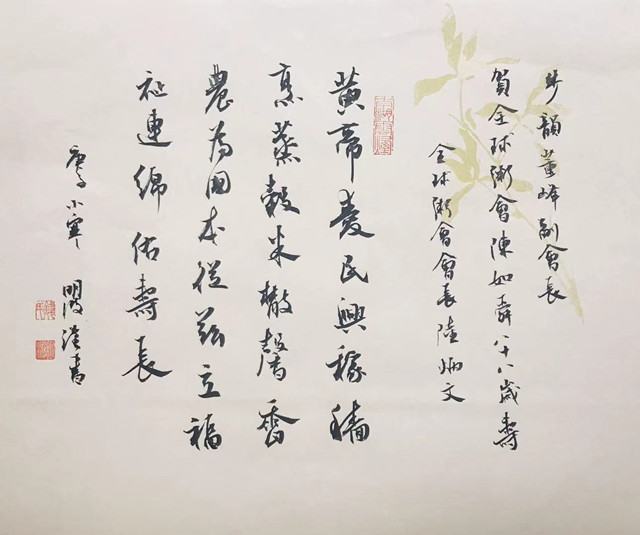 步韻董峰副會長
賀全球粥會陳如舜八十八歲壽
全球粥會會長陸炳文
黃帝愛民興稼穡
烹蒸穀米散馨香
農為國本從茲立福
祉連綿佑壽長
庚子小寒 明 書